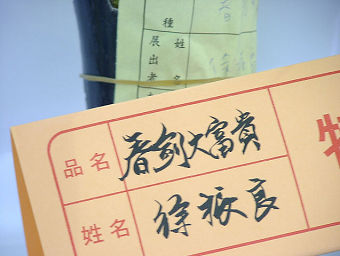 種
姓名
展出者
品名 春劍大富貴
姓名 徐振良